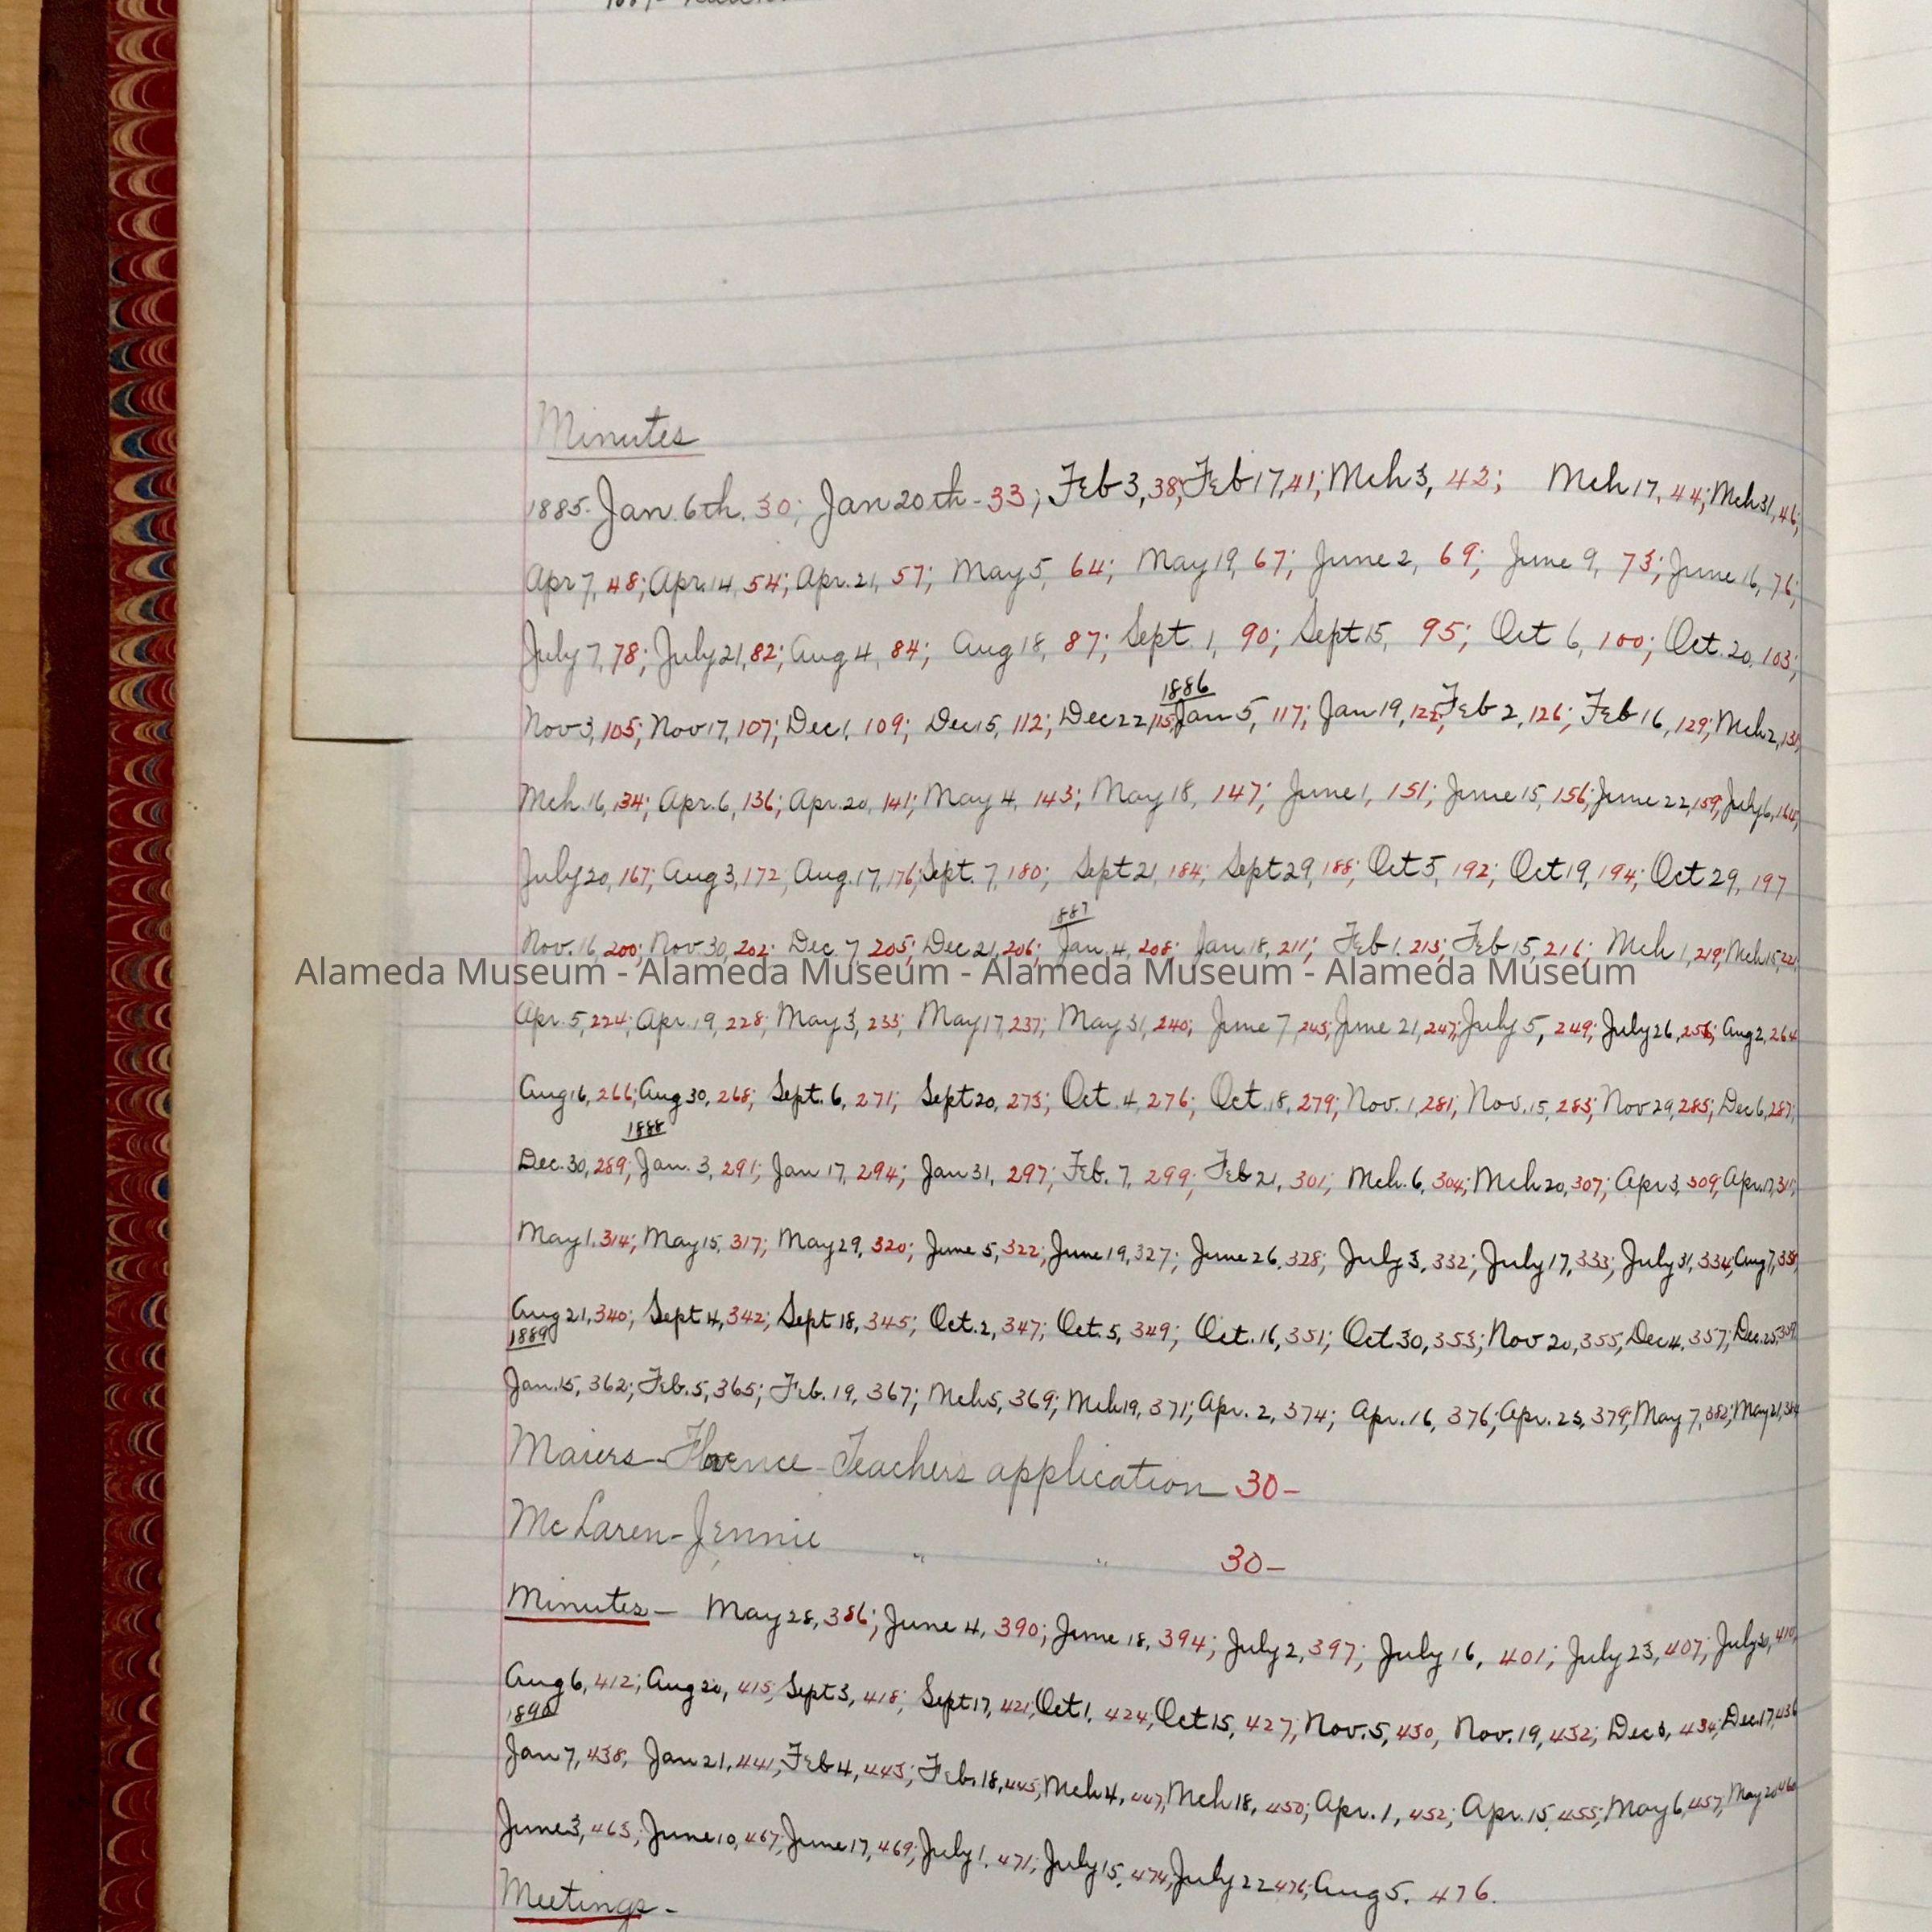 Minutes
1885. Jan. 6th. 30; Jan 20th - 33; Feb 3, 38; Feb 17, 41; Mch 3, 42; Mch 17, 44; Mch 31, 46;
Apr 7, 48; Apr. 14, 54; Apr. 21, 57; May 5, 64; May 19, 67; June 2, 69; June 9, 73; June 16, 76;
July 7, 78; July 21, 82; Aug 4, 84; Aug 18, 87; Sept. 1, 90; Sept 15, 95; Oct 6, 100; Oct. 20, 103;
1886
Nov 3, 105; Nov 17, 107; Dec 1, 109; Dec 15, 112; Dec 22, 115; Jan 5, 117; Jan 19, 122; Feb 2, 126; Feb 16, 129; Mch 2, 131;
Mch. 16, 134; Apr. 6, 136; Apr. 20, 141; May 4, 143; May 18, 147; June 1, 151; June 15, 156; June 22, 159; July 6, 164;
July 20, 167; Aug 3, 172; Aug. 17, 176; Sept. 7, 180; Sept 21, 184; Sept 29, 188; Oct 5, 192; Oct 19, 194; Oct 29, 197
1887
Nov. 16, 200; Nov 30, 202; Dec 7, 205; Dec 21, 206; Jan. 4, 208; Jan. 18, 211; Feb 1, 213; Feb 15, 216; Mch 1, 219; Mch 15, 221;
Alameda Museum - Alameda Museum - Alameda Museum - Alameda Museum
Apr. 5, 224; Apr. 19, 228; May 3, 233; May 17, 237; May 31, 240; June 7, 243; June 21, 247; July 5, 249; July 26, 256; Aug 2, 264
Aug 16, 266; Aug 30, 268; Sept. 6, 271; Sept 20, 273; Oct. 4, 276; Oct. 18, 279; Nov. 1, 281; Nov. 15, 283; Nov 29, 285; Dec 6, 287;
1888
Dec. 30, 289; Jan. 3, 291; Jan 17, 294; Jan 31, 297; Feb. 7, 299; Feb 21, 301; Mch. 6, 304; Mch 20, 307; Apr 3, 309; Apr. 17, 311;
May 1. 314; May 15, 317; May 29, 320; June 5, 322; June 19, 327; June 26, 328; July 3, 332; July 17, 333; July 31, 334; Aug 7, 338;
Aug 21, 340; Sept 4, 342; Sept 18, 345; Oct. 2, 347; Oct. 5, 349; Oct. 16, 351; Oct 30, 353; Nov 20, 355; Dec 4, 357; Dec. 25, 359
1889
Jan. 15, 362; Feb. 5, 365; Feb. 19, 367; Mch 5, 369; Mch 19, 371; Apr. 2, 374; Apr. 16, 376; Apr. 23, 379; May 7, 382; May 21, 384
Maiers - Florence - Teachers application 30-
McLaren - Jennie " " 30-
Minutes - May 28, 386; June 4, 390; June 18, 394; July 2, 397; July 16, 401; July 23, 407; July 30, 410;
Aug 6, 412; Aug 20, 415; Sept 3, 418; Sept 17, 421; Oct 1, 424; Oct 15, 427; Nov. 5, 430, Nov. 19, 432; Dec 3, 434; Dec. 17, 436
1890
Jan 7, 438, Jan 21, 441; Feb 4, 443; Feb. 18, 445; Mch 4, 447; Mch 18, 450; Apr. 1, 452; Apr. 15, 455; May 6, 457; May 20, 460
June 3, 463; June 10, 467; June 17, 469; July 1, 471; July 15, 474; July 22 476; Aug 5. 476.
Meetings -